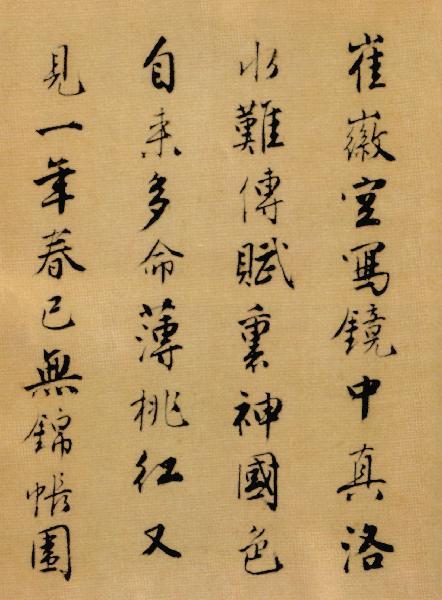 崔徽空寫鏡中真洛
水難傳賦裏神國色
自来多命薄桃红又
見一年春已無錦帳圍